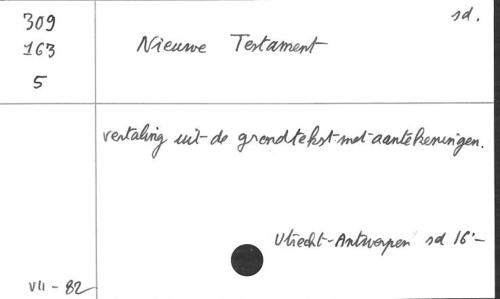 309
163
5
sd.
Nieuwe Testament
vertaling uit de grondtekst met aantekeningen.
Utrecht-Antwerpen sd 16°-
VII - 82